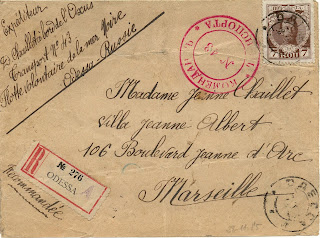 Expéditeur
Transport Nº 43
Flotte volontaire de la mer Noire
Odessa Russie
КОМЕНДАНТ
ПОРТА
7 КОП 7
Madame Jeanne Chaillet
Villa Jeanne Albert
106 Boulevard Jeanne d'Arc
Marseille
R
№ 276
ODESSA
Recommandée
ОДЕССА